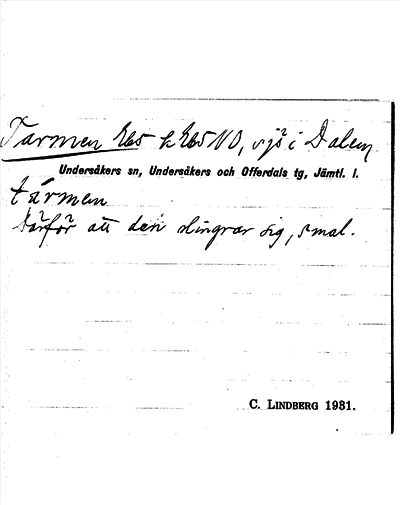 Tarmen Eb5 k Eb5NO, v sjö i Dalen.
Undersåkers sn, Undersåkers och Offerdals tg, Jämtl. l.
tármen
Därför att den slingrar sig, smal.
C. LINDBERG 1931.